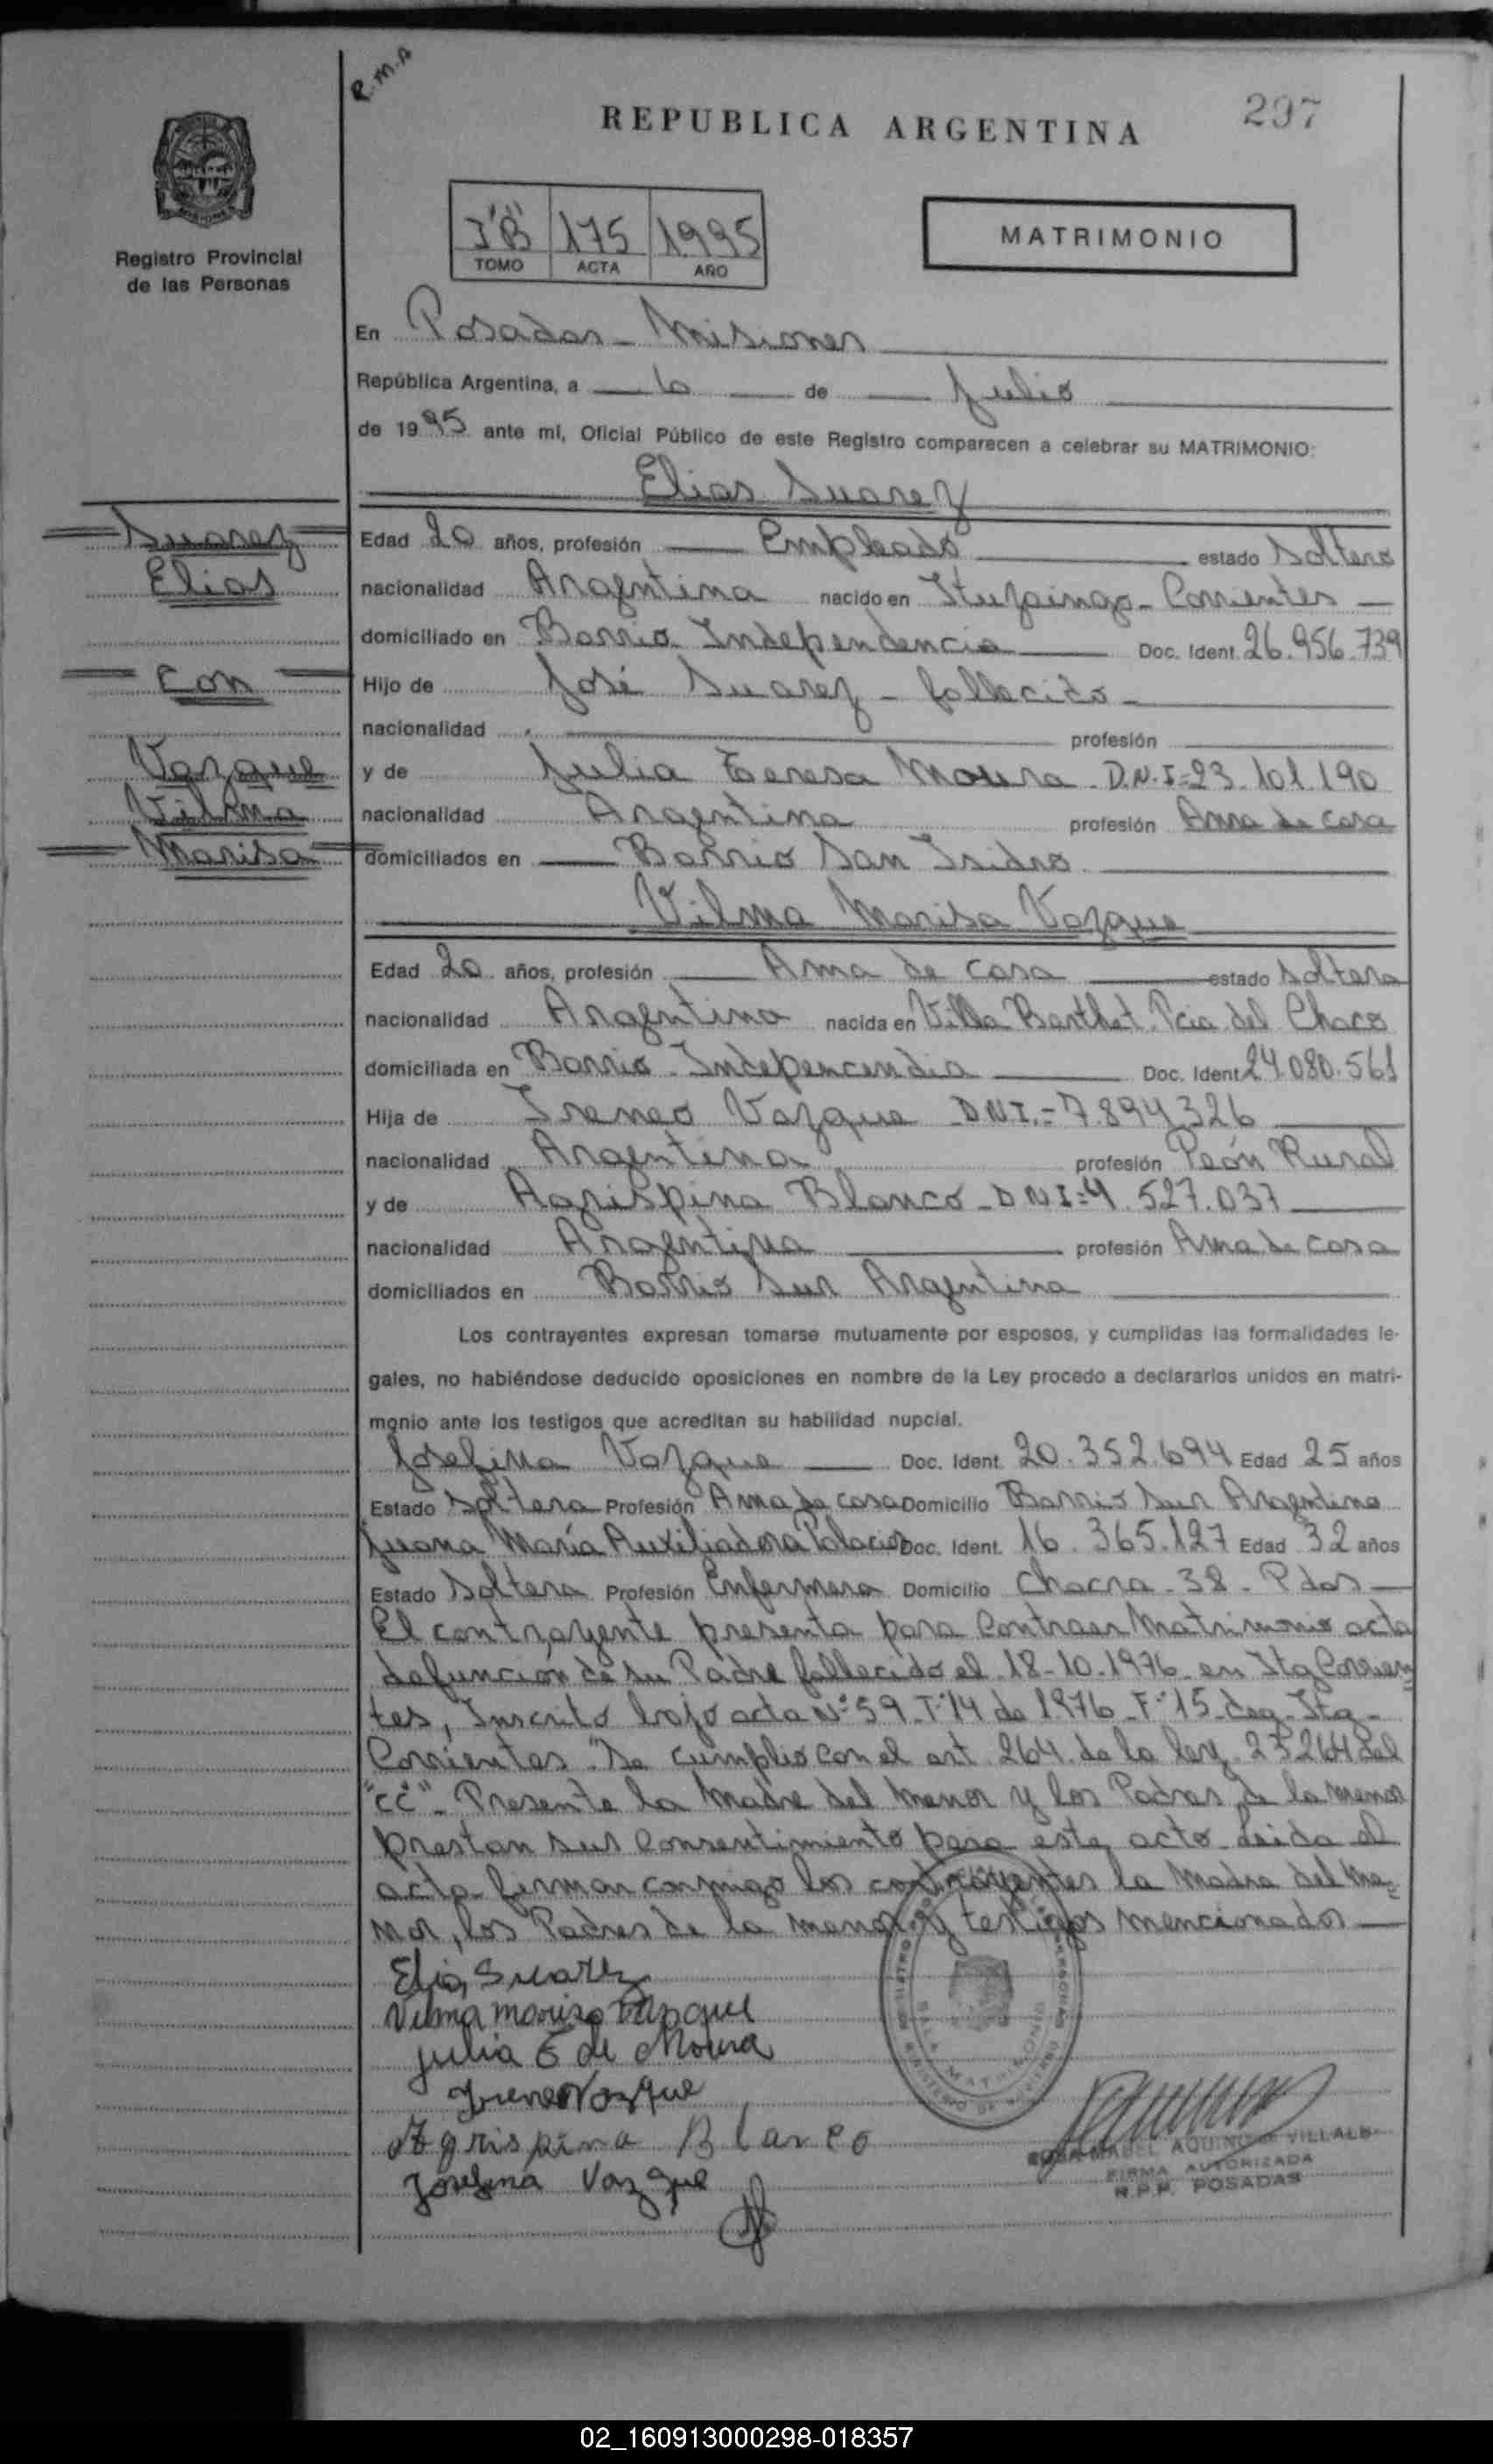 R.M.A
297
REPUBLICA ARGENTINA
Registro Provincial
de las Personas
I "B" 175 1995
TOMO ACTA AÑO
MATRIMONIO
En Posadas - Misiones
República Argentina, a 6 de Julio
de 1995 ante mí, Oficial Público de este Registro comparecen a celebrar su MATRIMONIO:
Elias Suarez
Suarez
Elias
con
Vazque
Vilma
Marisa
Edad 20 años, profesión Empleado estado soltero
nacionalidad Argentina nacido en Ituzaingo - Corrientes
domiciliado en Barrio Independencia Doc. Ident. 26.956.739
Hijo de José Suarez - fallecido -
nacionalidad profesión
y de Julia Teresa Moura - D.N.I= 23.101.190
nacionalidad Argentina profesión Ama de casa
domiciliados en Barrio San Isidro
Vilma Marisa Vazque
Edad 20 años, profesión Ama de casa estado soltera
nacionalidad Argentina nacida en Villa Berthet Pcia del Chaco
domiciliada en Barrio Indepencendia Doc. Ident 24.080.561
Hija de Ireneo Vazque DNI.= 7.894.326
nacionalidad Argentina profesión Peón Rural
y de Agrispina Blanco - DNI= 4.527.037
nacionalidad Argentina profesión Ama de casa
domiciliados en Barrio Sur Argentina
Los contrayentes expresan tomarse mutuamente por esposos, y cumplidas las formalidades le-
gales, no habiéndose deducido oposiciones en nombre de la Ley procedo a declararlos unidos en matri-
monio ante los testigos que acreditan su habilidad nupcial.
Josefina Vazque Doc. Ident. 20.352.694 Edad 25 años
Estado soltera Profesión Ama de casa Domicilio Barrio Sur Argentino
Juana María Auxiliadora Palacios Doc. Ident. 16.365.127 Edad 32 años
Estado Soltera Profesión Enfermera Domicilio Chacra - 38 - Pdas
El contrayente presenta para Contraer Matrimonio acta
defunción de su Padre fallecido el 18-10-1976 en Itg Corrien
tes, Inscrito bajo acta Nº 59 - T:14 de 1976 - F:15 - Itg -
Corrientes. "Se cumplio con el art. 264 de la ley 23264 del
"cc" - Presente la Madre del Menor y los Padres de la menor
prestan sus consentimiento para este acto. Leida el
acta firman conmigo los contrayentes la Madre del Me=
nor, los Padres de la menor y testigos mencionados
Elias Suarez
Vilma marisa Vazque
Julia E de Moura
Ireneo Vazque
Agrispina Blanco
Josefina Vazque
SALA MATRIMONIO
MABEL AQUINO VILLALB
FIRMA AUTORIZADA
R.P.P. POSADAS
02_160913000298-018357